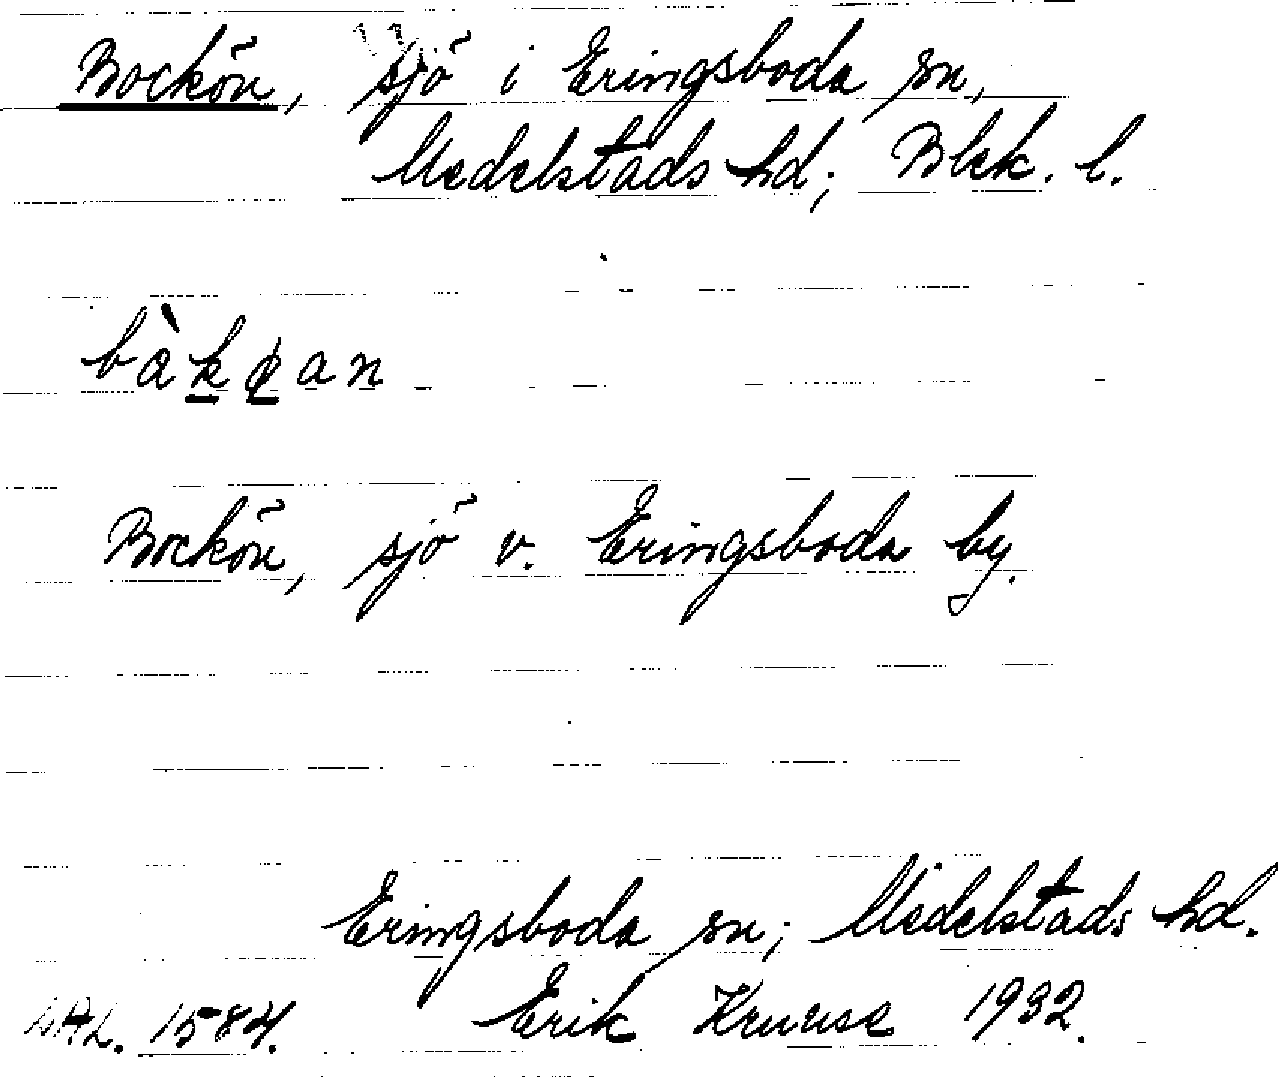 Bockön, sjö i Eringsboda sn,
Medelstads hd; Blek. l.
Bockön, sjö v. Eringsboda by.
Eringsboda sn; Medelstads hd.
1584. Erik Kruuse 1932.